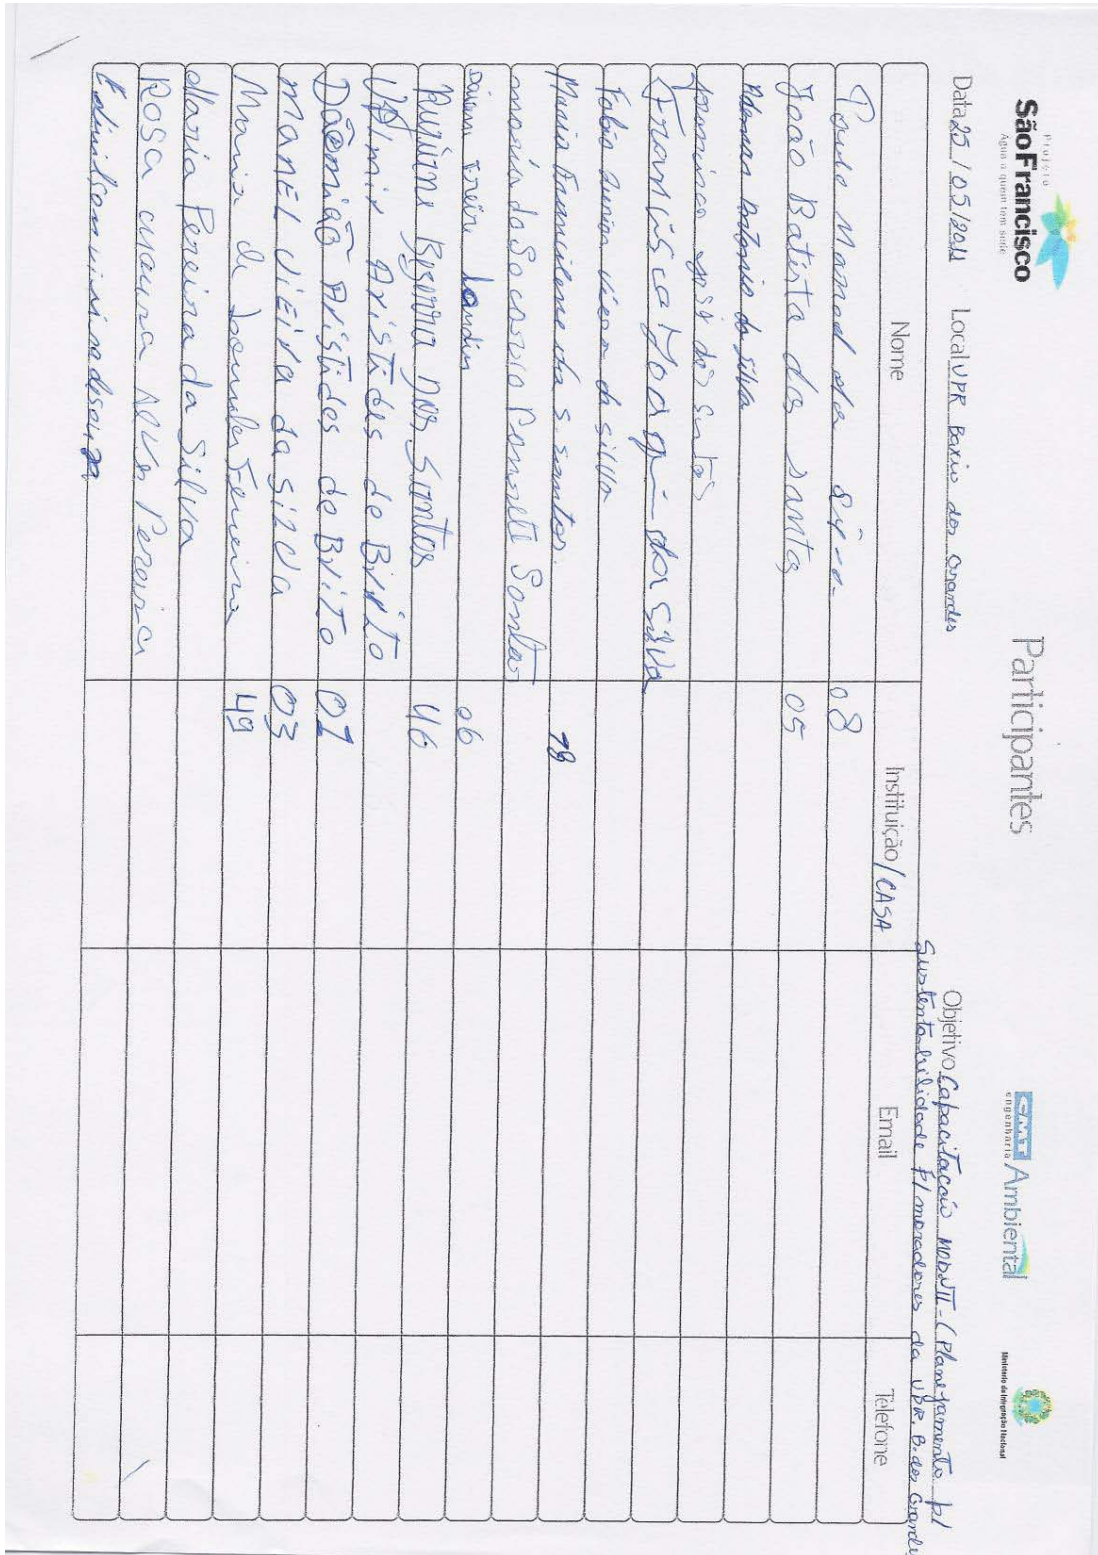 Projeto
São Francisco
Água a quem tem sede
Participantes
CMT Ambiental
engenharia
Ministério da Integração Nacional
Data 25/05/2011 Local VPR Baxio dos Grandes Objetivo Capacitação Mod. VII - (Planejamento p/
Sustentabilidade p/ moradores da VPR. B. dos Grandes
Nome Instituição/CASA Email Telefone
Manoel da 08
João Batista dos Santos 05
Antonio da Silva
José dos Santos
Francisca da Silva
Fabio Junior Vieira da Silva
Maria Francilene da S Santos. 18
do Socorro Santos
Freire Landim 06
Bezerra dos Santos 46
Valmir Aristides de Brito
Damião Aristides de Brito 01
MANEL VIEIRA da SILVA 03
Maria de Lourdes Ferreira 49
Maria Pereira da Silva
ROSA Alves Pereira